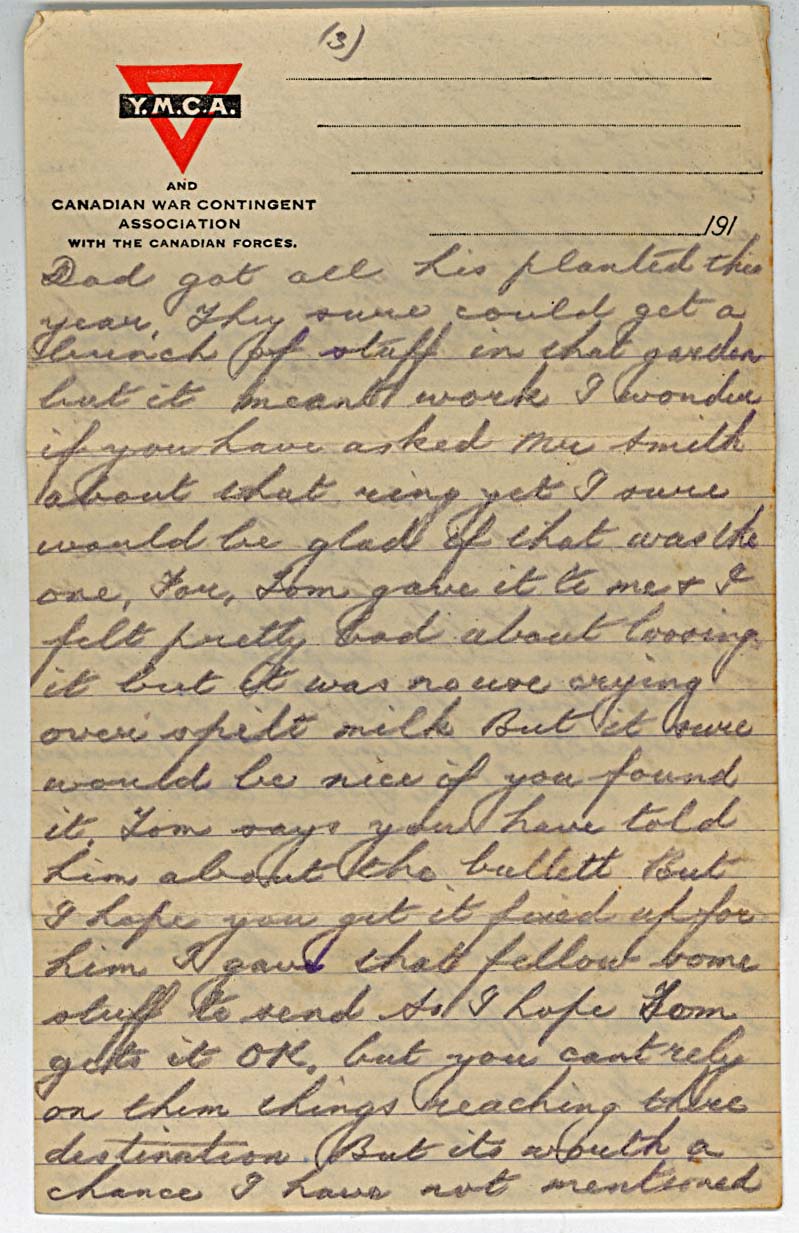 (3)
Y.M.C.A.
AND
CANADIAN WAR CONTINGENT
ASSOCIATION
WITH THE CANADIAN FORCES.
191
Dad got all his planted this
year, They sure could get a
bunch of stuff in that garden
but it meant work I wonder
if you have asked Mr Smith
about that ring yet I sure
would be glad if that was the
one, For, Tom gave it to me & I
felt pretty bad about loosing
it but it was no use crying
over spilt milk But it sure
would be nice if you found
it, Tom says you have told
him about the bullett But
I hope you get it fixed up for
him I gave that fellow some
stuff to send so I hope Tom
gets it OK, but you cant rely
on them things reaching there
destination. But its worth a
chance I have not mentioned